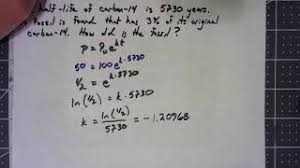 half-life of carbon-14 is 5730 years.
fossil is found that has 3% of its original
carbon-14. How old is the fossil?
P = P₀e^kt
50 = 100e^k·5730
½ = e^k·5730
ln(½) = k·5730
k = ln(½)/5730 = -1.20968